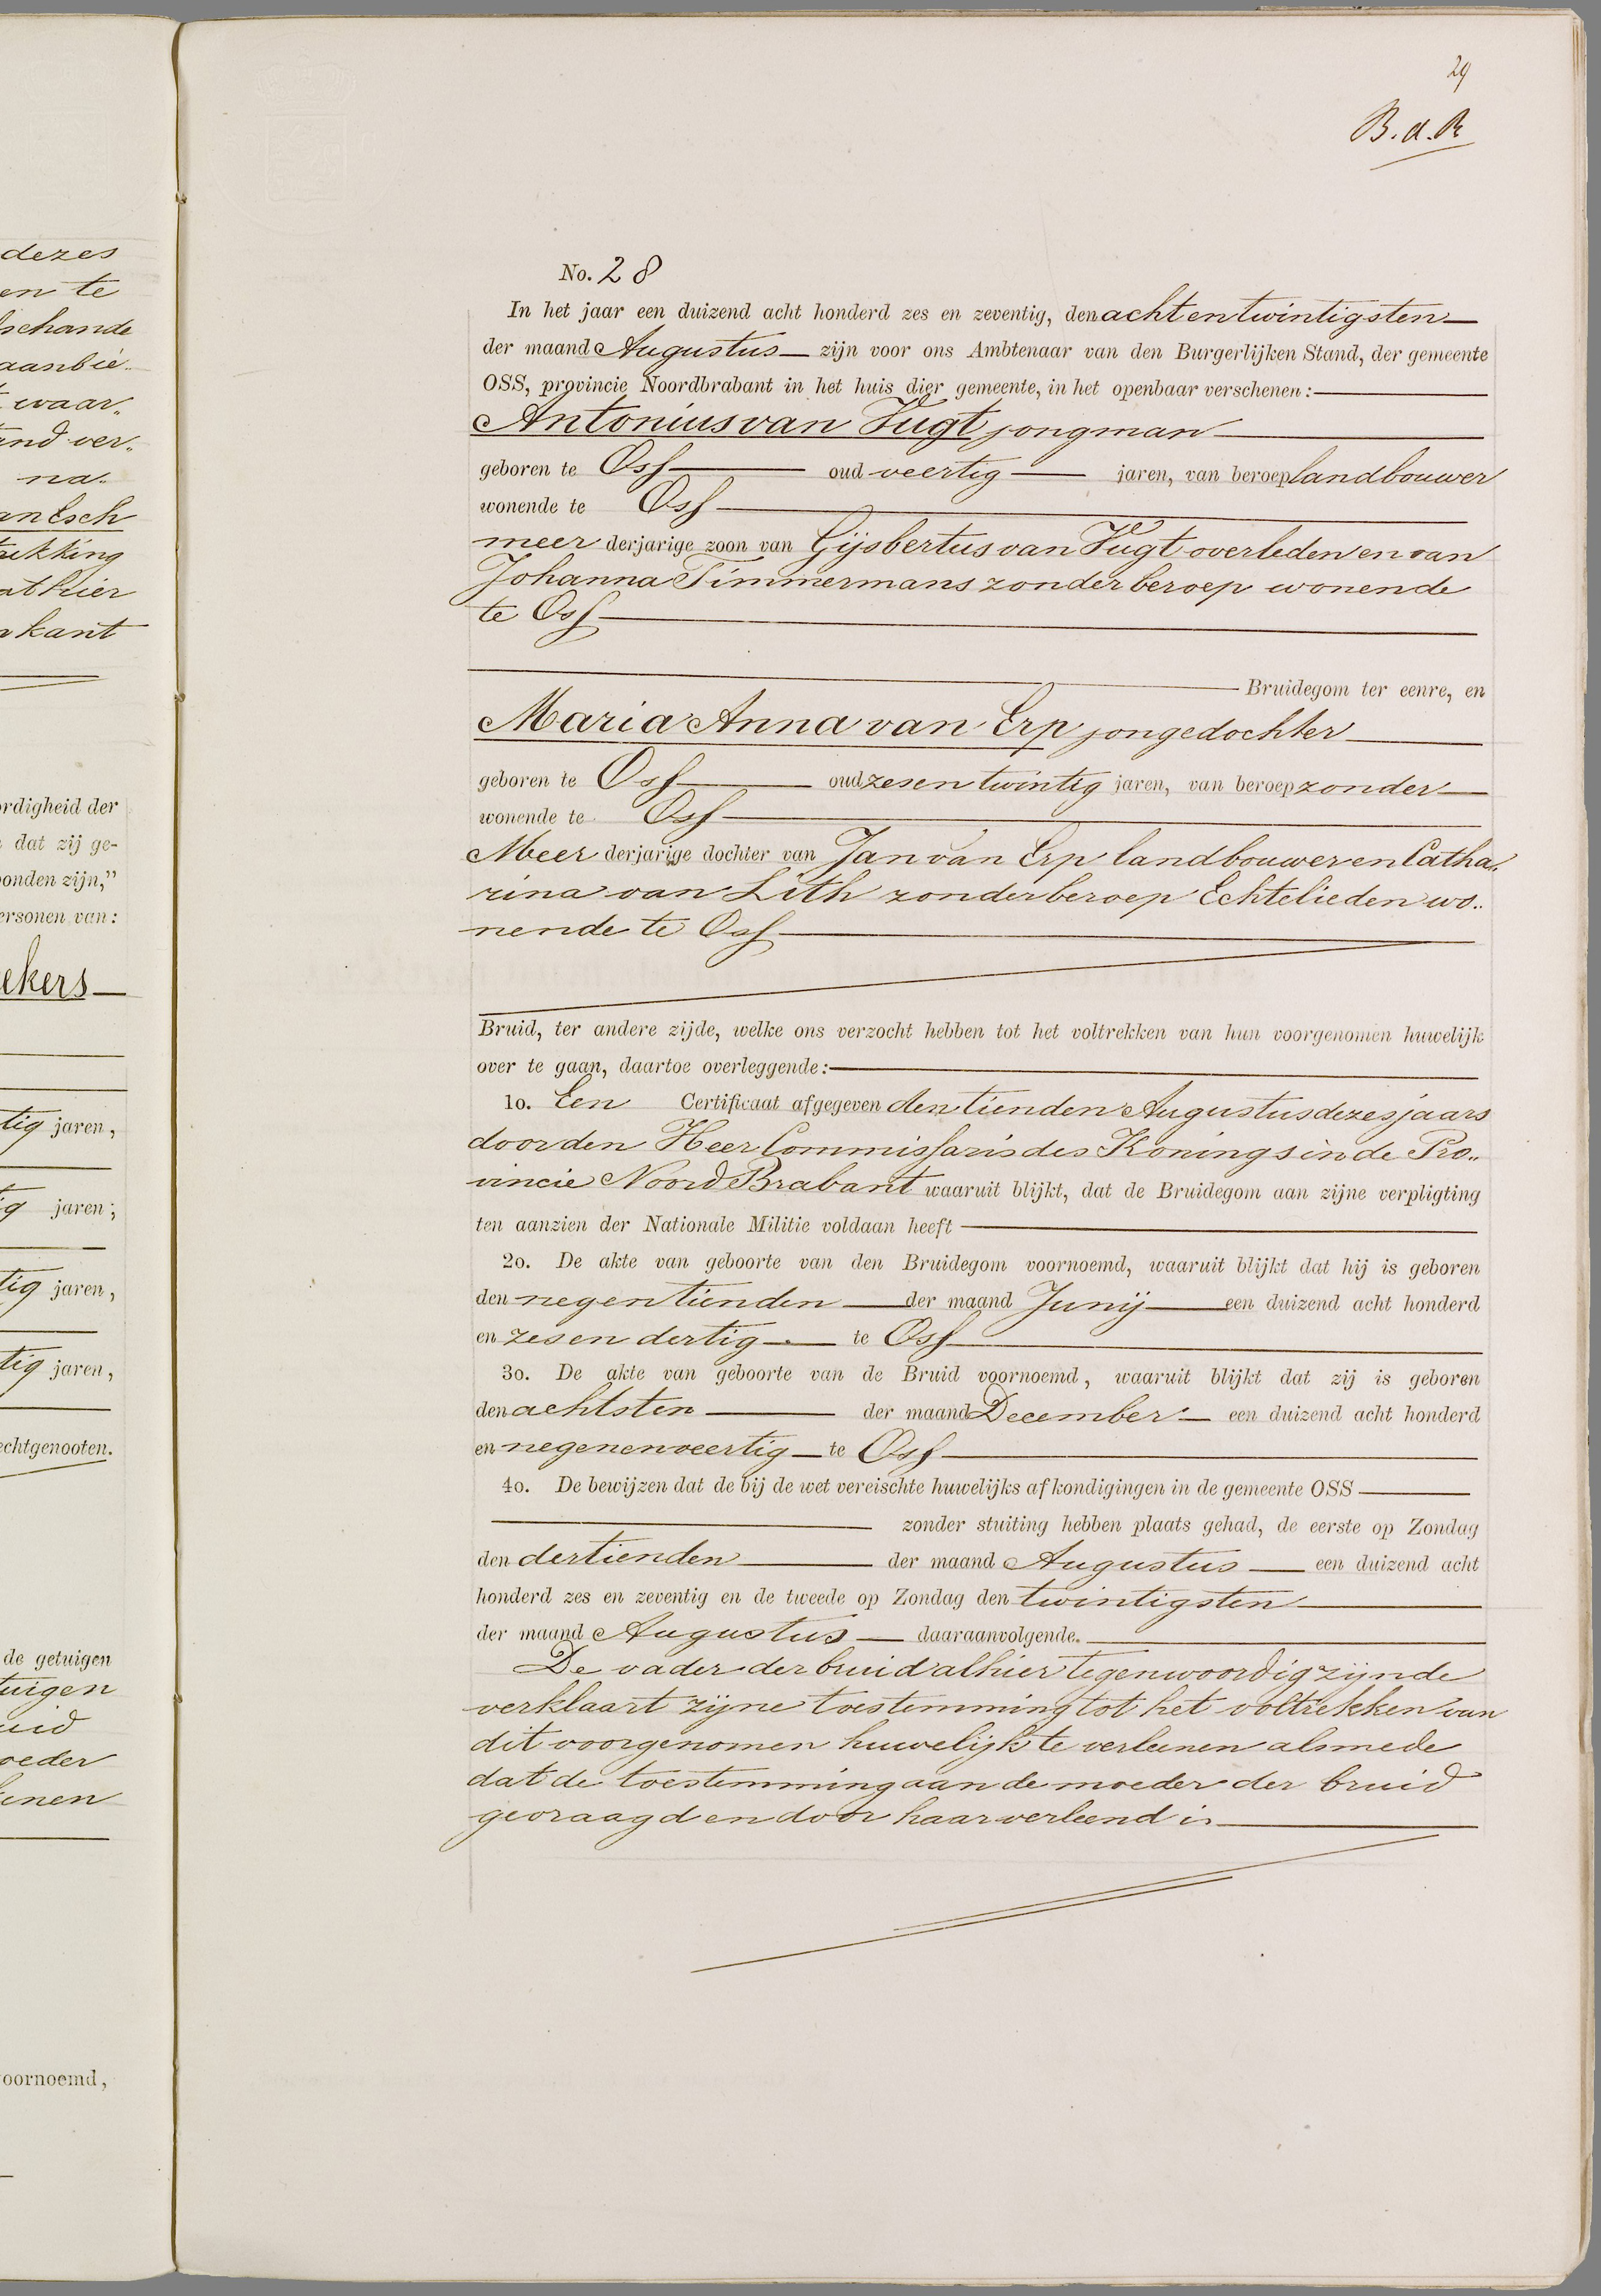 dezes
en te
schande
aanbie„
waar„
and ver„
na„
an Esch
trekking
at hier
kant
ordigheid der
dat zij ge-
onden zijn,”
ersonen van:
ekers
tig jaren,
ig jaren;
tig jaren,
tig jaren,
echtgenooten.
de getuigen
tuigen
uid
oeder
enen
voornoemd,
29
B.d.R
No. 28
In het jaar een duizend acht honderd zes en zeventig, den achtentwintigsten
der maand Augustus zijn voor ons Ambtenaar van den Burgerlijken Stand, der gemeente
OSS, provincie Noordbrabant in het huis dier gemeente, in het openbaar verschenen:
Antonius van Vugt jongman
geboren te Oss oud veertig jaren, van beroep landbouwer
wonende te Oss
meer derjarige zoon van Gijsbertus van Vugt overleden en van
Johanna Timmermans zonder beroep wonende
te Oss
Bruidegom ter eenre, en
Maria Anna van Erp jongedochter
geboren te Oss oud zesentwintig jaren, van beroep zonder
wonende te Oss
Meer derjarige dochter van Jan van Erp landbouwer en Catha„
rina van Lith zonder beroep Echtelieden wo„
nende te Oss
Bruid, ter andere zijde, welke ons verzocht hebben tot het voltrekken van hun voorgenomen huwelijk
over te gaan, daartoe overleggende:
1o. Een Certificaat afgegeven den tienden Augustus dezes jaars
door den Heer Commissaris des Konings in de Pro„
vincie Noord Brabant waaruit blijkt, dat de Bruidegom aan zijne verpligting
ten aanzien der Nationale Militie voldaan heeft
2o. De akte van geboorte van den Bruidegom voornoemd, waaruit blijkt dat hij is geboren
den negentienden der maand Junij een duizend acht honderd
en zesendertig te Oss
3o. De akte van geboorte van de Bruid voornoemd, waaruit blijkt dat zij is geboren
den achtsten der maand December een duizend acht honderd
en negenenveertig te Oss
4o. De bewijzen dat de bij de wet vereischte huwelijks afkondigingen in de gemeente OSS
zonder stuiting hebben plaats gehad, de eerste op Zondag
den dertienden der maand Augustus een duizend acht
honderd zes en zeventig en de tweede op Zondag den twintigsten
der maand Augustus daaraanvolgende.
De vader der bruid alhier tegenwoordig zijnde
verklaart zijne toestemming tot het voltrekken van
dit voorgenomen huwelijk te verleenen alsmede
dat de toestemming aan de moeder der bruid
gevraagd en door haar verleend is